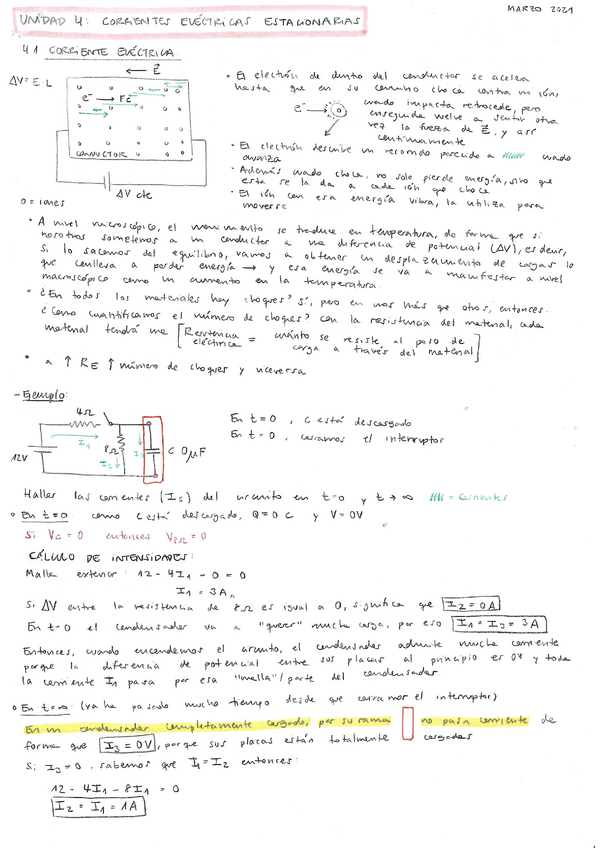 MARZO 2021
UNIDAD 4: CORRIENTES ELÉCTRICAS ESTACIONARIAS
4.1 CORRIENTE ELÉCTRICA
ΔV = E·L
← E
e⁻ → Fe
CONDUCTOR
ΔV cte
0 = iones
• El electrón de dentro del conductor se acelera
hasta que en su camino choca contra un ión,
cuando impacta retrocede, pero
enseguida vuelve a sentir otra
vez la fuerza de E, y así
continuamente
e⁻
• El electrón describe un recorrido parecido a cuando
avanza
• Además cuando choca, no solo pierde energía, sino que
esta se la da a cada ión que choca
• El ión con esa energía vibra, la utiliza para
moverse
• A nivel microscópico, el movimiento se traduce en temperatura, de forma que si
nosotros sometemos a un conductor a una diferencia de potencial (ΔV), es decir,
si lo sacamos del equilibrio, vamos a obtener un desplazamiento de cargas lo
que conlleva a perder energía → y esa energía se va a manifestar a nivel
macroscópico como un aumento en la temperatura.
• ¿En todos los materiales hay choques? sí, pero en unos más que otros, entonces:
¿Cómo cuantificamos el número de choques? con la resistencia del material, cada
material tendrá una [Resistencia eléctrica = cuánto se resiste al paso de
carga a través del material]
• a ↑ RE ↑ número de choques y viceversa
- Ejemplo:
4Ω
I1
8Ω
I2
I3
12V
C 0μF
En t=0, C está descargado
En t=0, cerramos el interruptor
Hallar las corrientes (Is) del circuito en t=0 y t→∞ = corrientes
• En t=0: como C está descargado, Q=0 C y V=0V
Si Vc = 0 entonces V8Ω = 0
CÁLCULO DE INTENSIDADES:
Malla exterior: 12 - 4I1 - 0 = 0
I1 = 3A
Si ΔV entre la resistencia de 8Ω es igual a 0, significa que I2 = 0A
En t=0 el condensador va a "querer" mucha carga, por eso I1 = I3 = 3A
Entonces, cuando encendemos el circuito, el condensador admite mucha corriente
porque la diferencia de potencial entre sus placas al principio es 0V y toda
la corriente I1 pasa por esa "malla"/parte del condensador
• En t=∞: (ya ha pasado mucho tiempo desde que cerramos el interruptor)
En un condensador completamente cargado, por su rama no pasa corriente de
forma que I3 = 0V, porque sus placas están totalmente cargadas
Si I3 = 0, sabemos que I1 = I2 entonces:
12 - 4I1 - 8I1 = 0
I2 = I1 = 1A